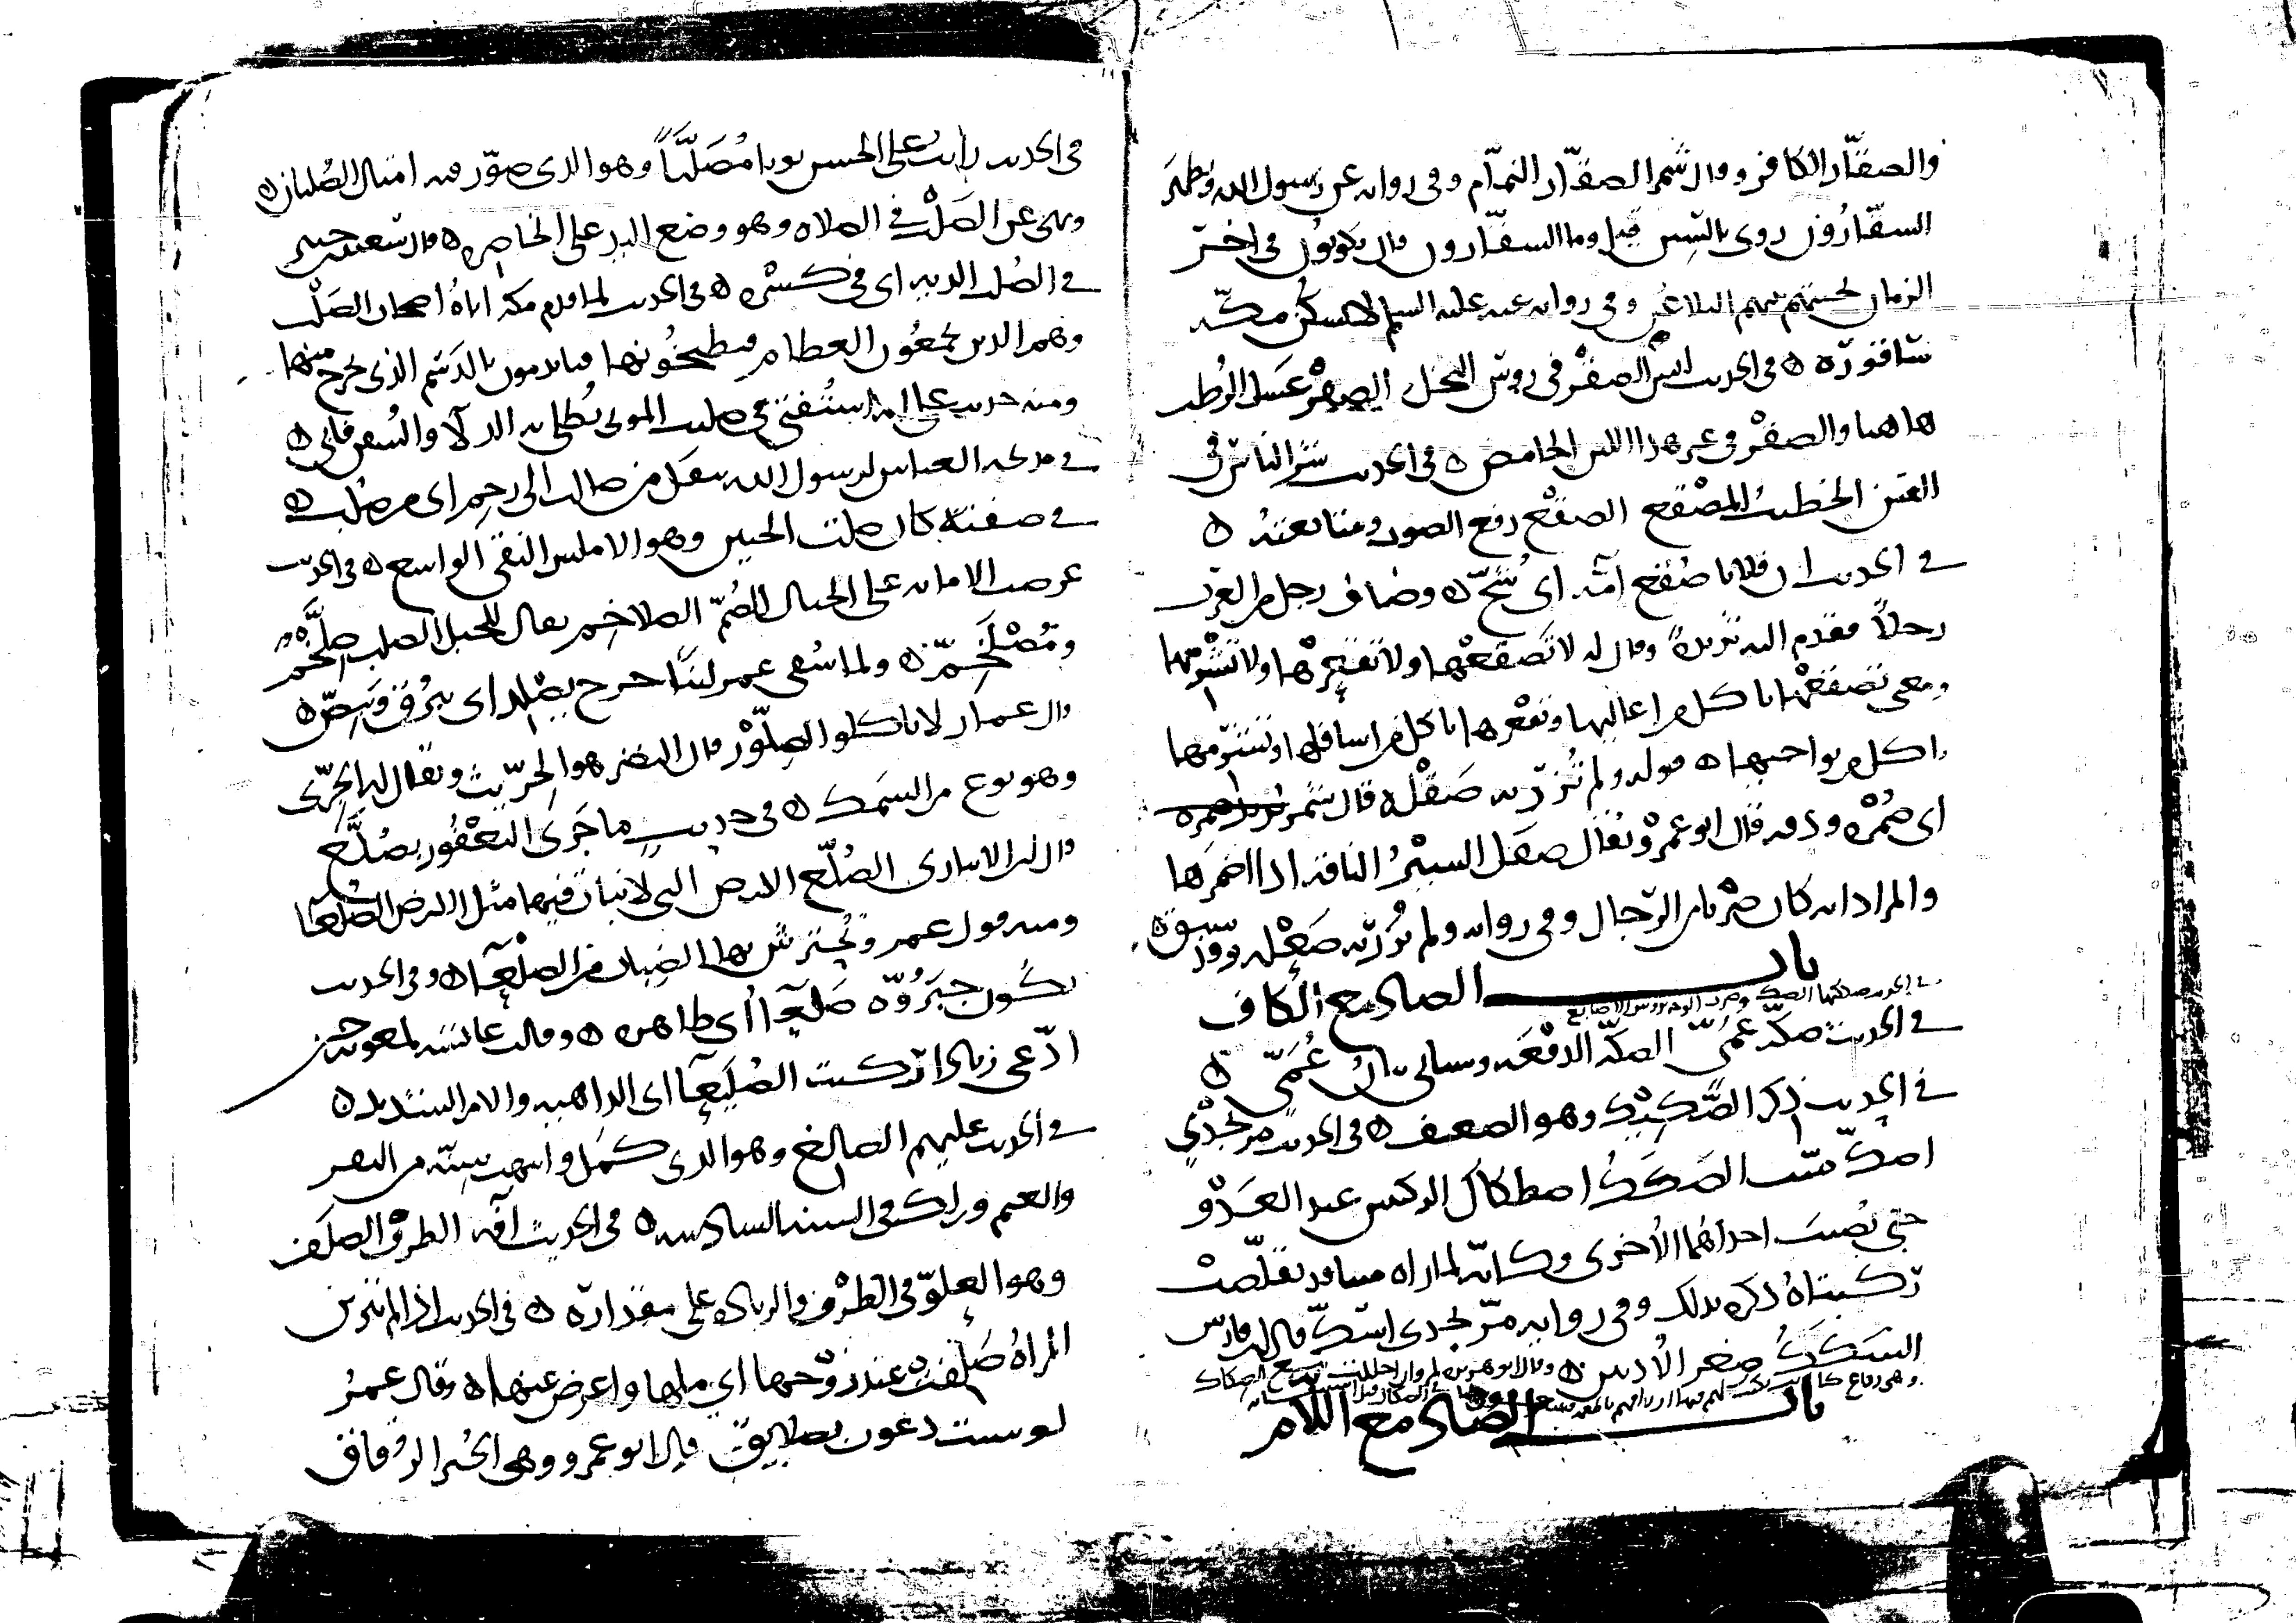 والصقّار الكافر وقال شمر الصقّار النمّام وفي رواية عن رسول الله ويظهر
السقّارون روي بالسين قيل وما السقّارون قال يكونون في اخر
الزمان تحيتهم بينهم التلاعن وفي رواية عنه عليه السلم لا يسكن مكة
ساقورة ٥ في الحديث ليس الصقر في روس النخل الصقر عسل الرطب
هاهنا والصقر في غير هذا اللبن الحامض ٥ في الحديث شر الناس في
الفتن الخطيب المصقع الصقع رفع الصوت ومتابعته ٥
في الحديث ان فلانا صقع آمّة اي شجّ ٥ وضاف رجل من العرب
رجلاً فقدم اليه ثريدة وقال له لا تصقعها ولا تقعرها ولا تشرمها
ومعنى تصقعها تاكل من اعاليها وتقعرها تاكل من اسافلها وتشرمها
تاكل من نواحيها ٥ قوله ولم تزر به صقلة قال شمر يريد ضمره
اي ضمره ودقه قال ابو عمرو يقال صقل السير الناقة اذا اضمرها
والمراد انه كان ضربا من الرجال وفي رواية ولم تزر به صعلة وقد سبق ٥
باب الصاد مع الكاف
في الحديث صكة عمي الصكة الدفعة وسياتي في باب عمي ٥
في الحديث ذكر الصكيك وهو الضعيف ٥ في الحديث مر بجدي
اصك ميت الصكك اصطكاك الركبتين عند العدو
حتى تصيب احداهما الاخرى وكانه لما راه ميتا وقد تقلصت
ركبتاه ذكره بذلك وفي رواية مر بجدي اسك قال ابن فارس
السكك صغر الاذنين ٥ وقال ابو هريرة لمروان احللت بيع الصكاك
باب الصاد مع اللام
في الحديث رايت على الحسن ثوبا مصلّباً وهو الذي صوّر فيه امثال الصلبان ٥
ونهى عن الصلب في الصلاة وهو وضع اليد على الخاصرة ٥ قال سعيد بن جبير
في الصلب الدية اي في كسره ٥ في الحديث لما قدم مكة اتاه اصحاب الصلب
وهم الذين يجمعون العظام فيطبخونها فياتدمون بالدسم الذي يخرج منها
ومنه حديث علي انه استفتي في صليب الموتى يطلى به الدلاء والسفن فابى ٥
في مدحة العباس لرسول الله تنقل من صالب الى رحم اي من صلب ٥
في صفته كان صلت الجبين وهو الاملس النقي الواسع ٥ في الحديث
عرضت الامانة على الجبال الصمّ الصلاخم يقال للجبل الصلب صلخم
ومصلخمّ ٥ ولما سقي عمر لبناً خرج يصلد اي يبرق ويبص ٥
قال عمار لا تاكلوا الصلّور قال النضر هو الجرّيث ويقال له الجرّي
وهو نوع من السمك ٥ في حديث ما جرى اليعفور بصلّع
قال ابن الانباري الصلّع الارض التي لا نبات فيها مثل الارض الصلعآ
ومنه قول عمر وتحترش بها الضباب من الصلعآ ٥ وفي الحديث
تكون جبروة صلعآ اي ظاهرة ٥ وقالت عائشة لمعوية حين
ادّعى زيادا ركبت الصليعآ اي الداهية والامر الشديد ٥
في الحديث عليهم الصالغ وهو الذي كمل وانتهى سنه من البقر
والغنم وذلك في السنة السادسة ٥ في الحديث آفة الظرف الصلف
وهو الغلوّ في الظرف والزيادة على مقداره ٥ في الحديث اذا لم تتزين
المراة صلفت عند زوجها اي ملها واعرض عنها ٥ وقال عمر
لو شيت دعوت بصلايق قال ابو عمرو وهي الخبز الرقاق